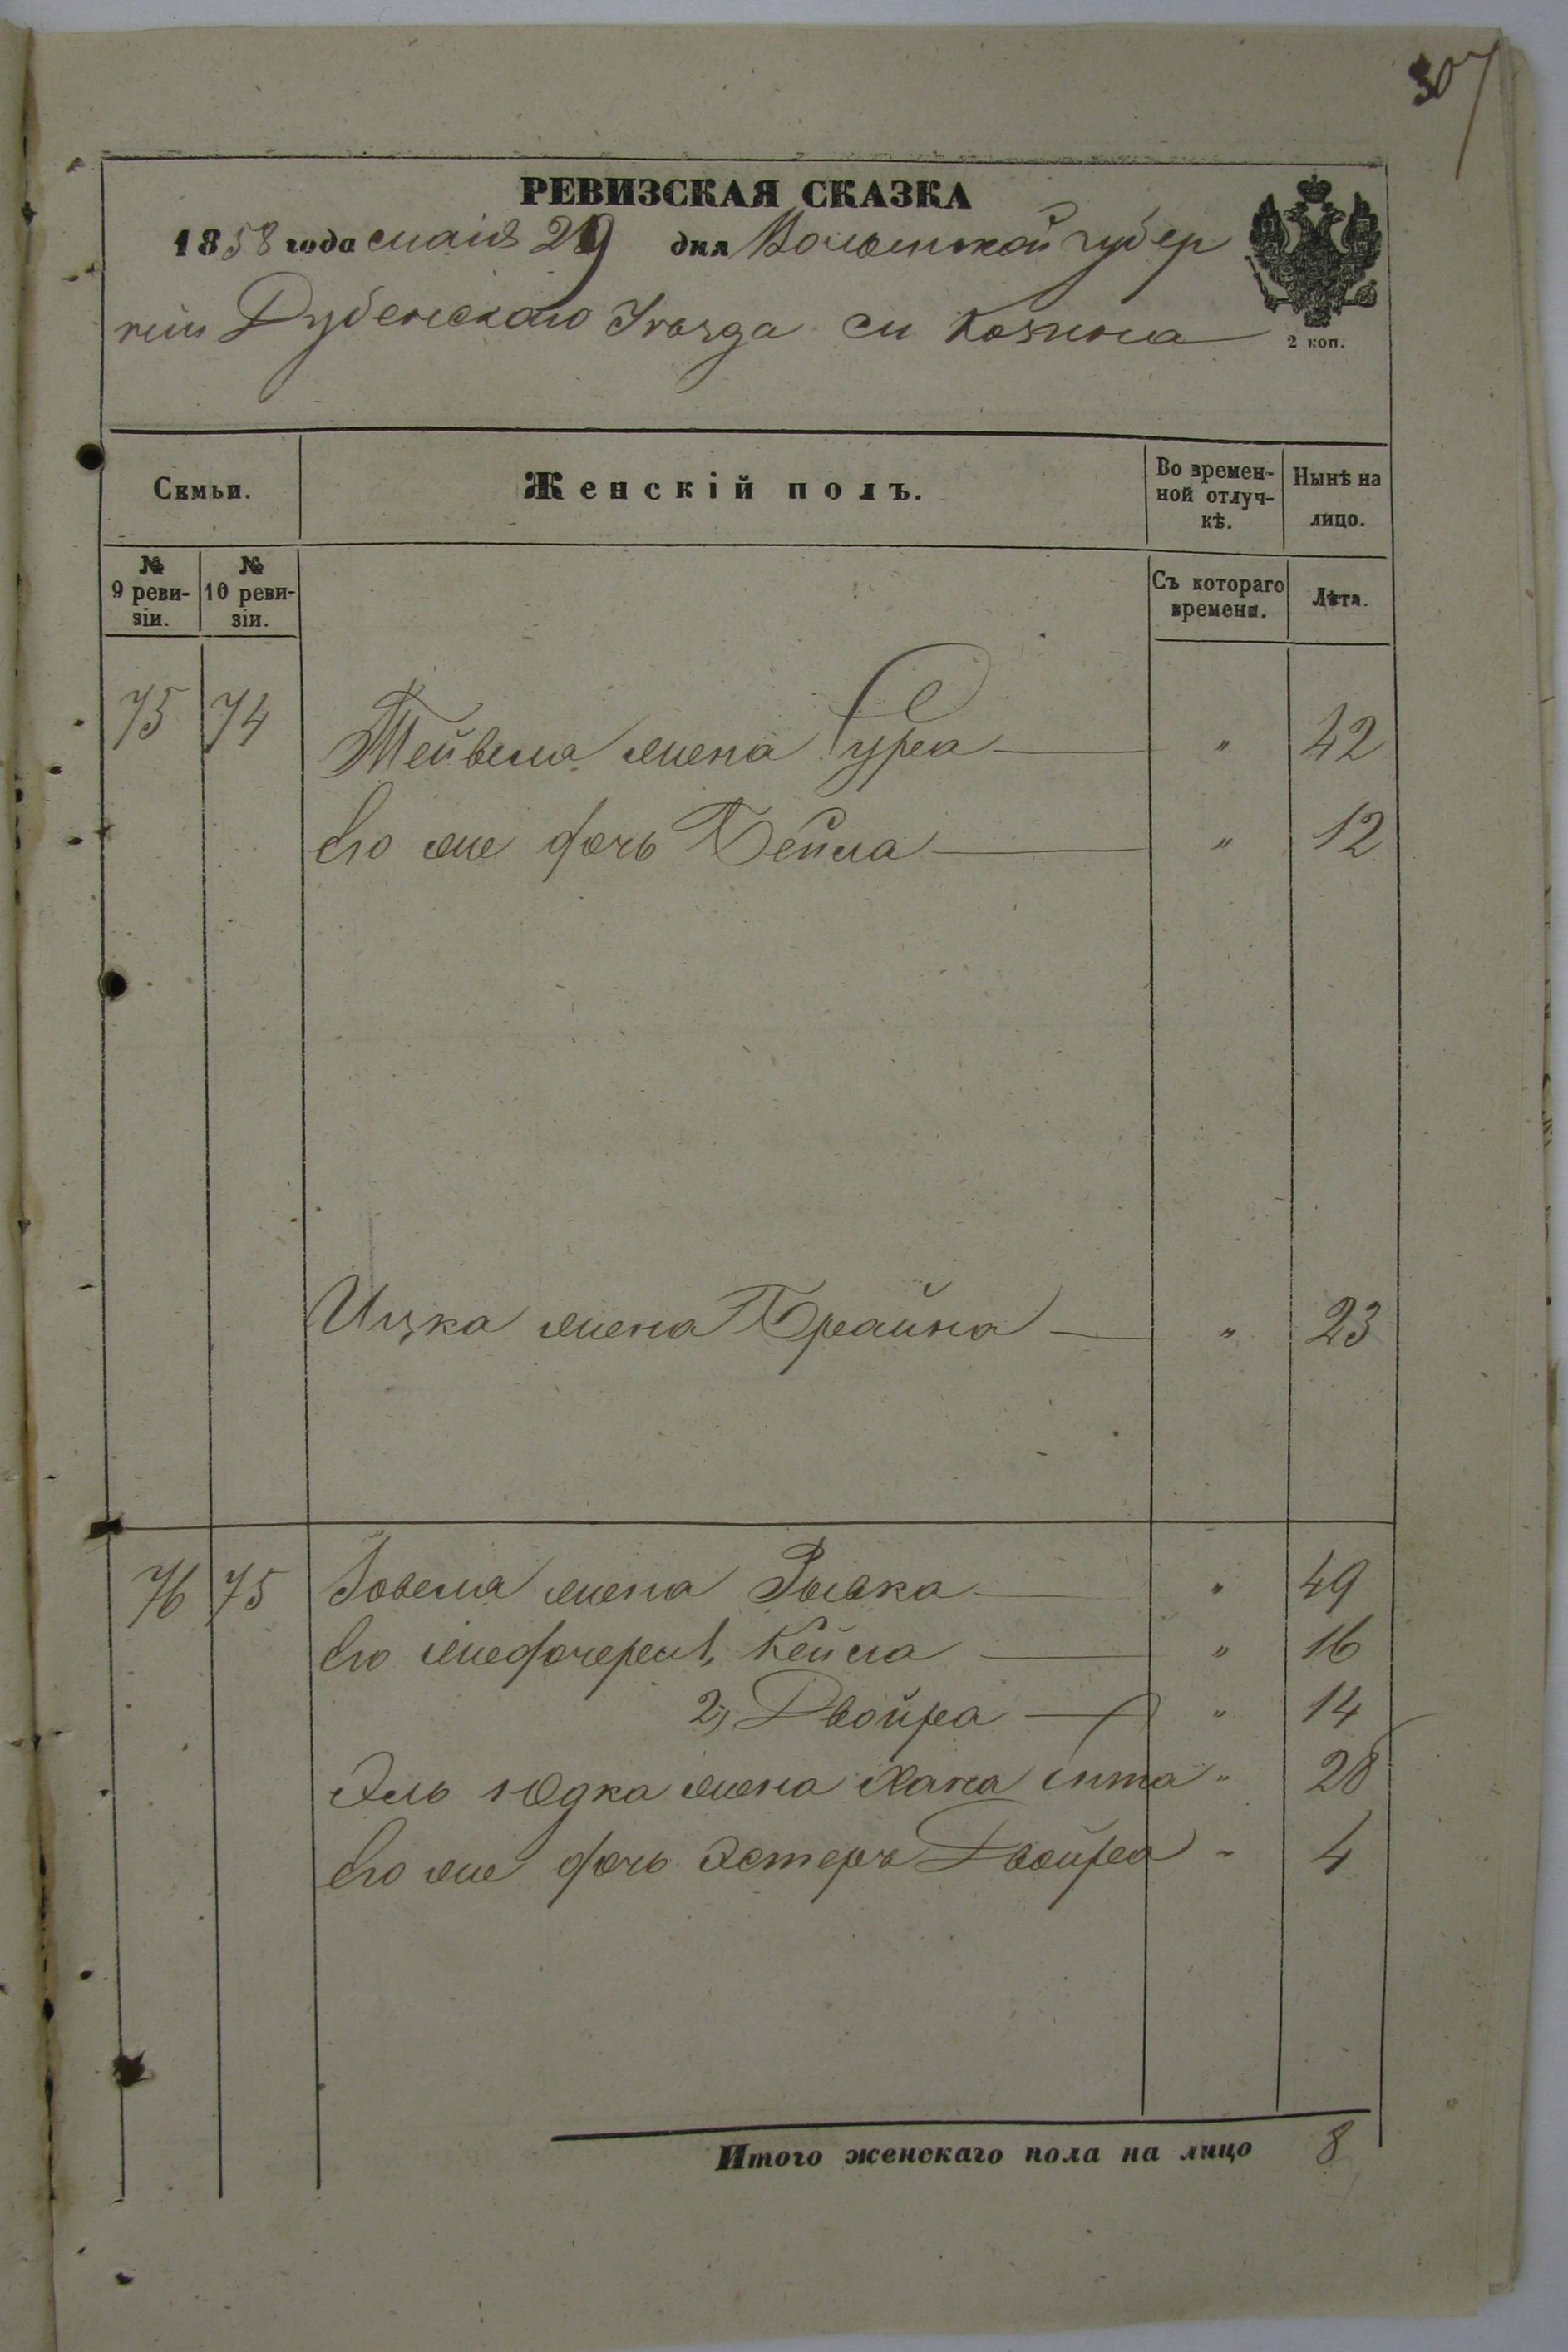 307
РЕВИЗСКАЯ СКАЗКА
1858 года маія 29 дня Волынской губер
ніи Дубенскаго Уѣзда м Козина
2 коп.
Семьи.
Женскій полъ.
Во времен-
ной отлуч-
кѣ.
Нынѣ на
лицо.
№
9 реви-
зіи.
№
10 реви-
зіи.
Съ котораго
времени.
Лѣта.
75 74 Тейвеля жена Сура — " 42
Его же дочь Бейла — " 12
Ицка жена Брайна — " 23
76 75 Іовеля жена Рывка — " 49
Его же дочери 1, Кейла — " 16
2, Двойра — " 14
Эль Юдка жена Хана Ита " 28
Его же дочь Эстеръ Двойра " 4
Итого женскаго пола на лицо 8